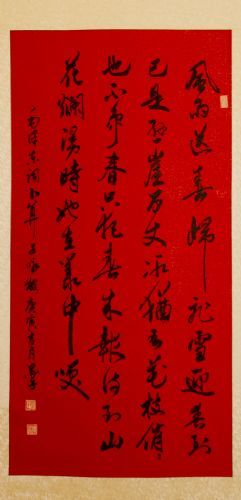 風雨送春歸飛雪迎春到
已是懸崖百丈冰猶有花枝俏
也不爭春只把春來報待到山
花爛漫時她在叢中笑
毛澤東詞卜算子咏梅庚寅